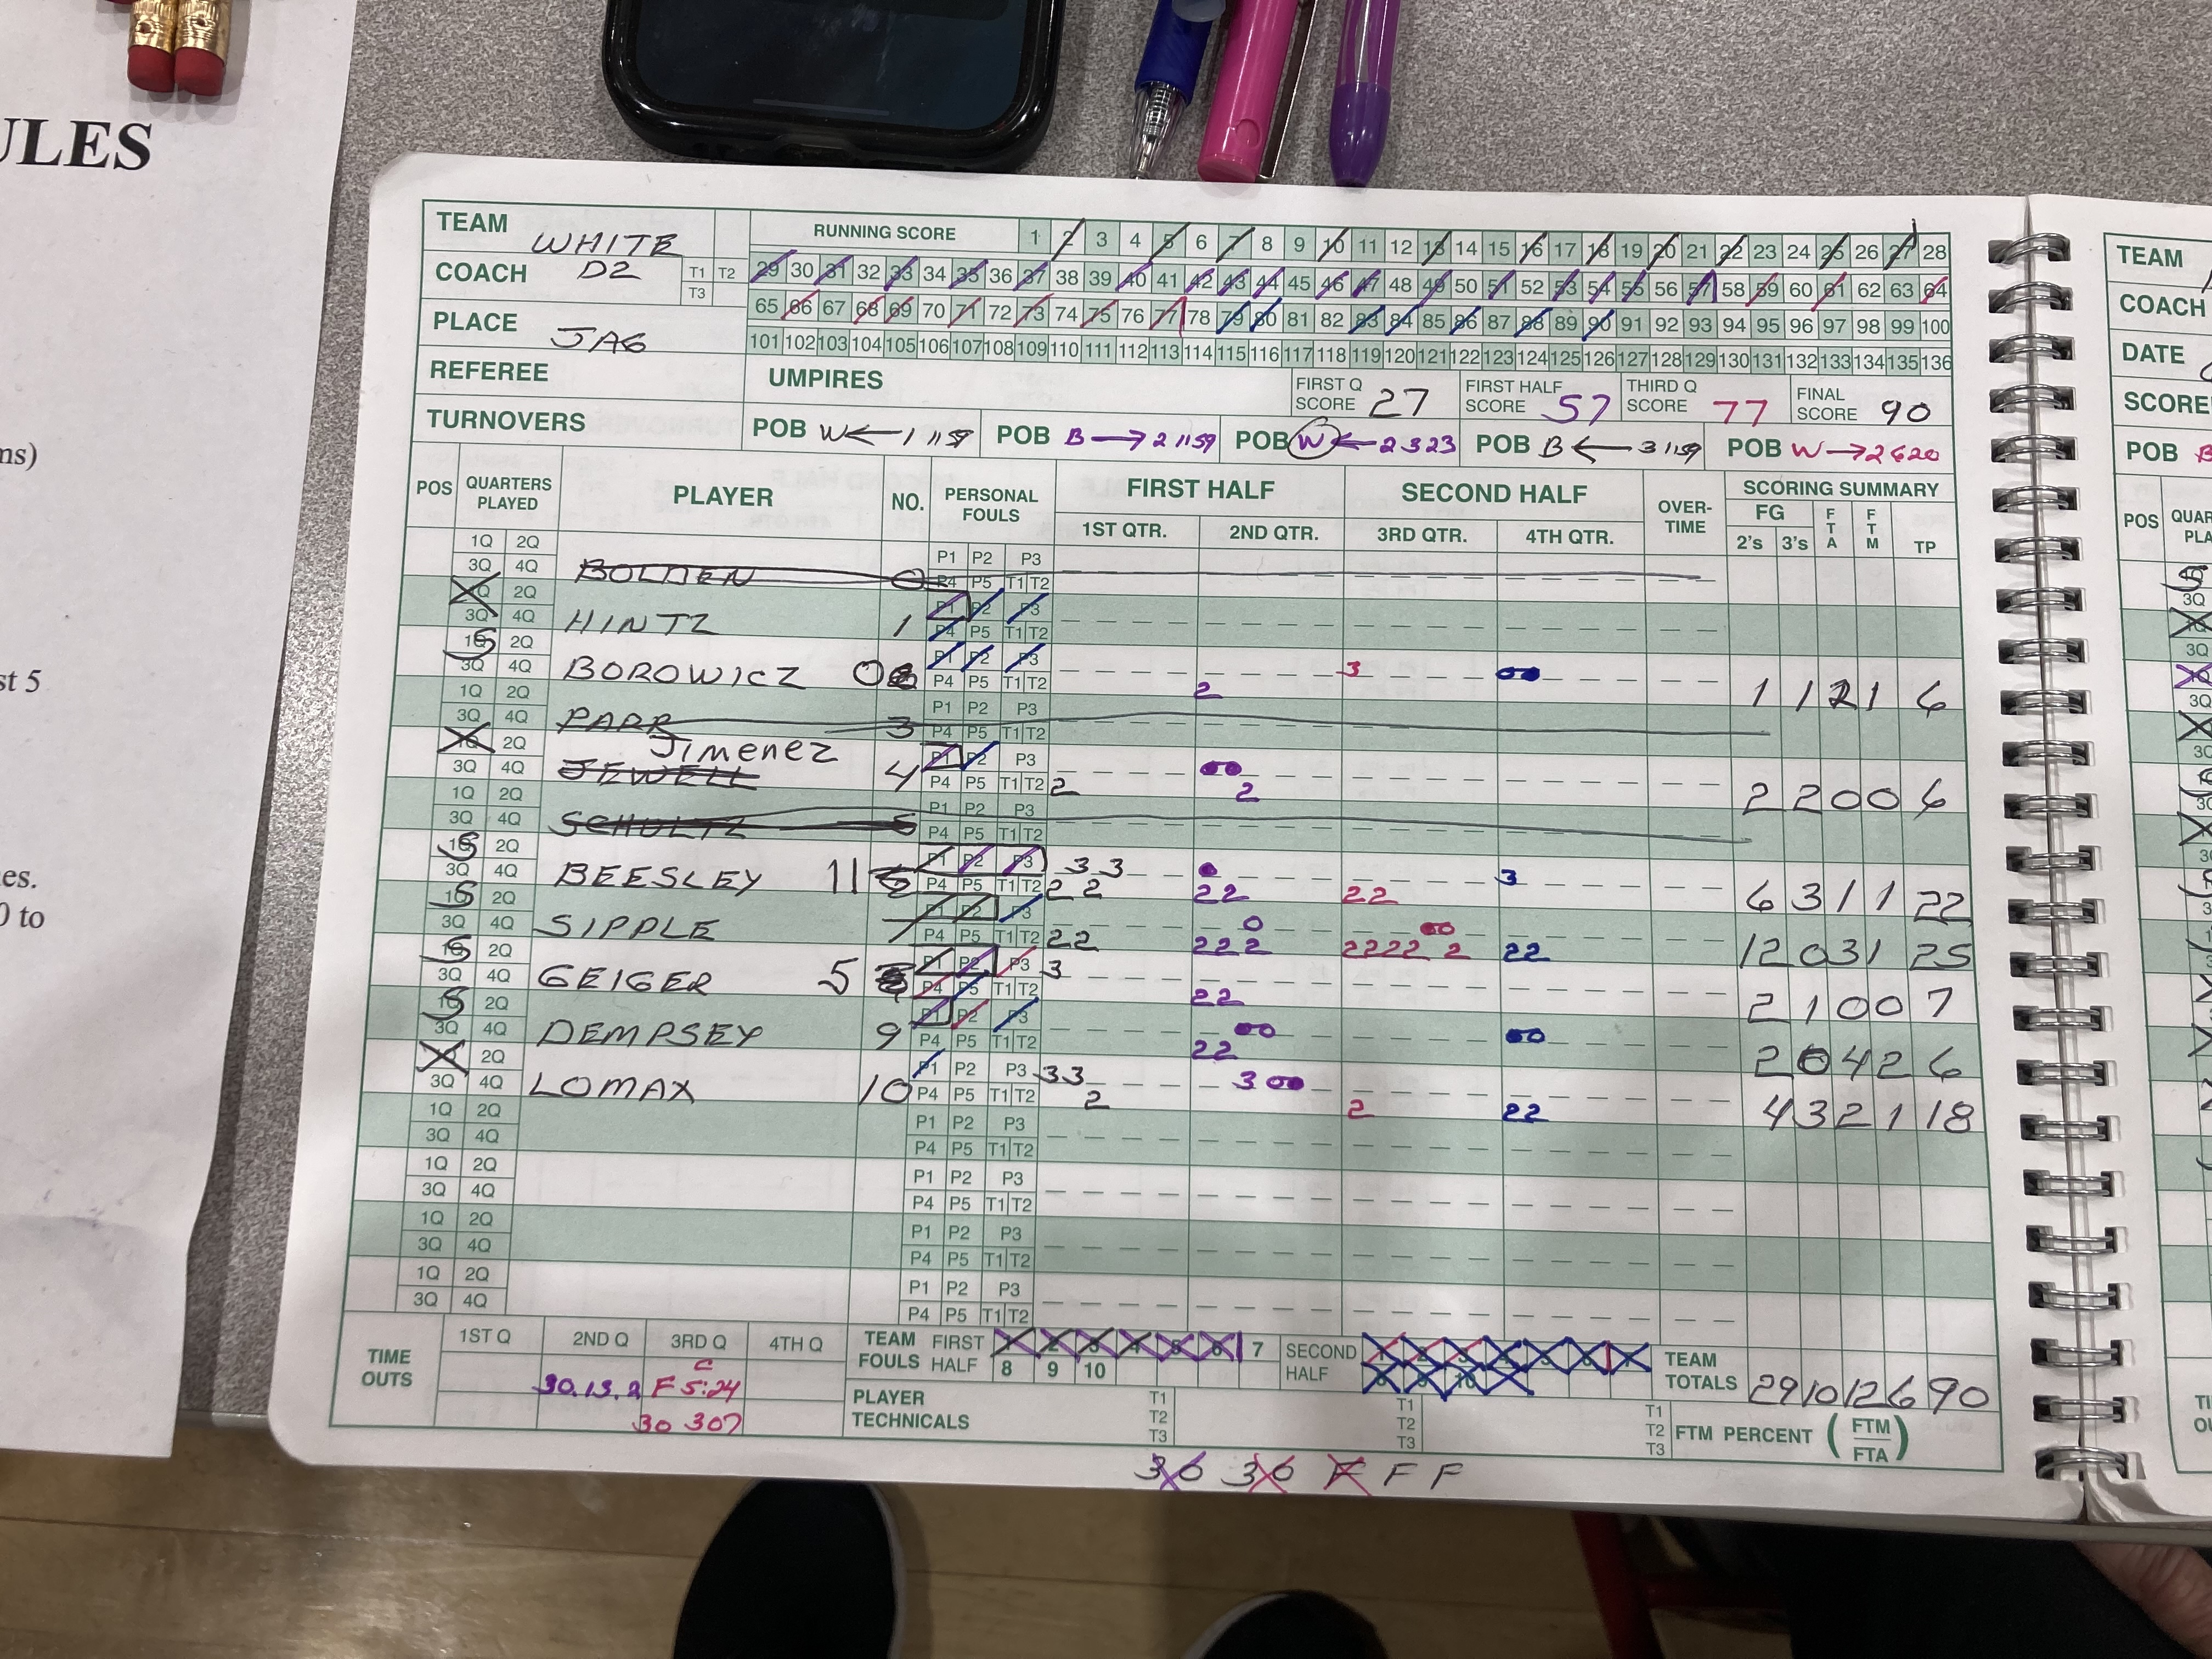 ULES
ns)
st 5
es.
0 to
TEAM WHITE
COACH D2 T1 T2 T3
PLACE JAG
REFEREE
TURNOVERS
RUNNING SCORE 1 2 3 4 5 6 7 8 9 10 11 12 13 14 15 16 17 18 19 20 21 22 23 24 25 26 27 28
29 30 31 32 33 34 35 36 37 38 39 40 41 42 43 44 45 46 47 48 49 50 51 52 53 54 55 56 57 58 59 60 61 62 63 64
65 66 67 68 69 70 71 72 73 74 75 76 77 78 79 80 81 82 83 84 85 86 87 88 89 90 91 92 93 94 95 96 97 98 99 100
101 102 103 104 105 106 107 108 109 110 111 112 113 114 115 116 117 118 119 120 121 122 123 124 125 126 127 128 129 130 131 132 133 134 135 136
UMPIRES FIRST Q SCORE 27 FIRST HALF SCORE 57 THIRD Q SCORE 77 FINAL SCORE 90
POB W ← 1 1159 POB B → 2 1159 POB W ← 2 323 POB B ← 3 1159 POB W → 2620
POS QUARTERS PLAYED PLAYER NO. PERSONAL FOULS FIRST HALF SECOND HALF OVER-TIME SCORING SUMMARY
1ST QTR. 2ND QTR. 3RD QTR. 4TH QTR. FG 2's 3's FTA FTM TP
1Q 2Q P1 P2 P3
3Q 4Q BOLDEN 0 P4 P5 T1 T2
1Q 2Q P1 P2 P3
3Q 4Q HINTZ 1 P4 P5 T1 T2
1Q 2Q P1 P2 P3 3
3Q 4Q BOROWICZ 0 P4 P5 T1 T2 2 1 1 2 1 6
1Q 2Q P1 P2 P3
3Q 4Q PARR 3 P4 P5 T1 T2
1Q 2Q Jimenez P1 P2 P3
3Q 4Q JEWELL 4 P4 P5 T1 T2 2 2 2 2 0 0 6
1Q 2Q P1 P2 P3
3Q 4Q SCHULTZ 5 P4 P5 T1 T2
1Q 2Q P1 P2 P3 3 3 3
3Q 4Q BEESLEY 11 P4 P5 T1 T2 2 2 22 22 6 3 1 1 22
1Q 2Q P1 P2 P3 0
3Q 4Q SIPPLE 7 P4 P5 T1 T2 22 222 2222 2 22 12 0 3 1 25
1Q 2Q P1 P2 P3 3
3Q 4Q GEIGER 5 P4 P5 T1 T2 22 2 1 0 0 7
1Q 2Q P1 P2 P3
3Q 4Q DEMPSEY 9 P4 P5 T1 T2 22 2 0 4 2 6
1Q 2Q P1 P2 P3 33 3
3Q 4Q LOMAX 10 P4 P5 T1 T2 2 2 22 4 3 2 1 18
1Q 2Q P1 P2 P3
3Q 4Q P4 P5 T1 T2
1Q 2Q P1 P2 P3
3Q 4Q P4 P5 T1 T2
1Q 2Q P1 P2 P3
3Q 4Q P4 P5 T1 T2
1Q 2Q P1 P2 P3
3Q 4Q P4 P5 T1 T2
TIME OUTS 1ST Q 2ND Q 3RD Q 4TH Q
30.13.2 F 5:24
30 307
TEAM FOULS FIRST HALF 1 2 3 4 5 6 7 8 9 10 SECOND HALF 1 2 3 4 5 6 7 8 9 10
TEAM TOTALS 29 10 12 6 90
PLAYER TECHNICALS T1 T2 T3 T1 T2 T3 T1 T2 T3
FTM PERCENT (FTM FTA)
30 30 F F F
TEAM
COACH
DATE
SCORE
POB B
POS